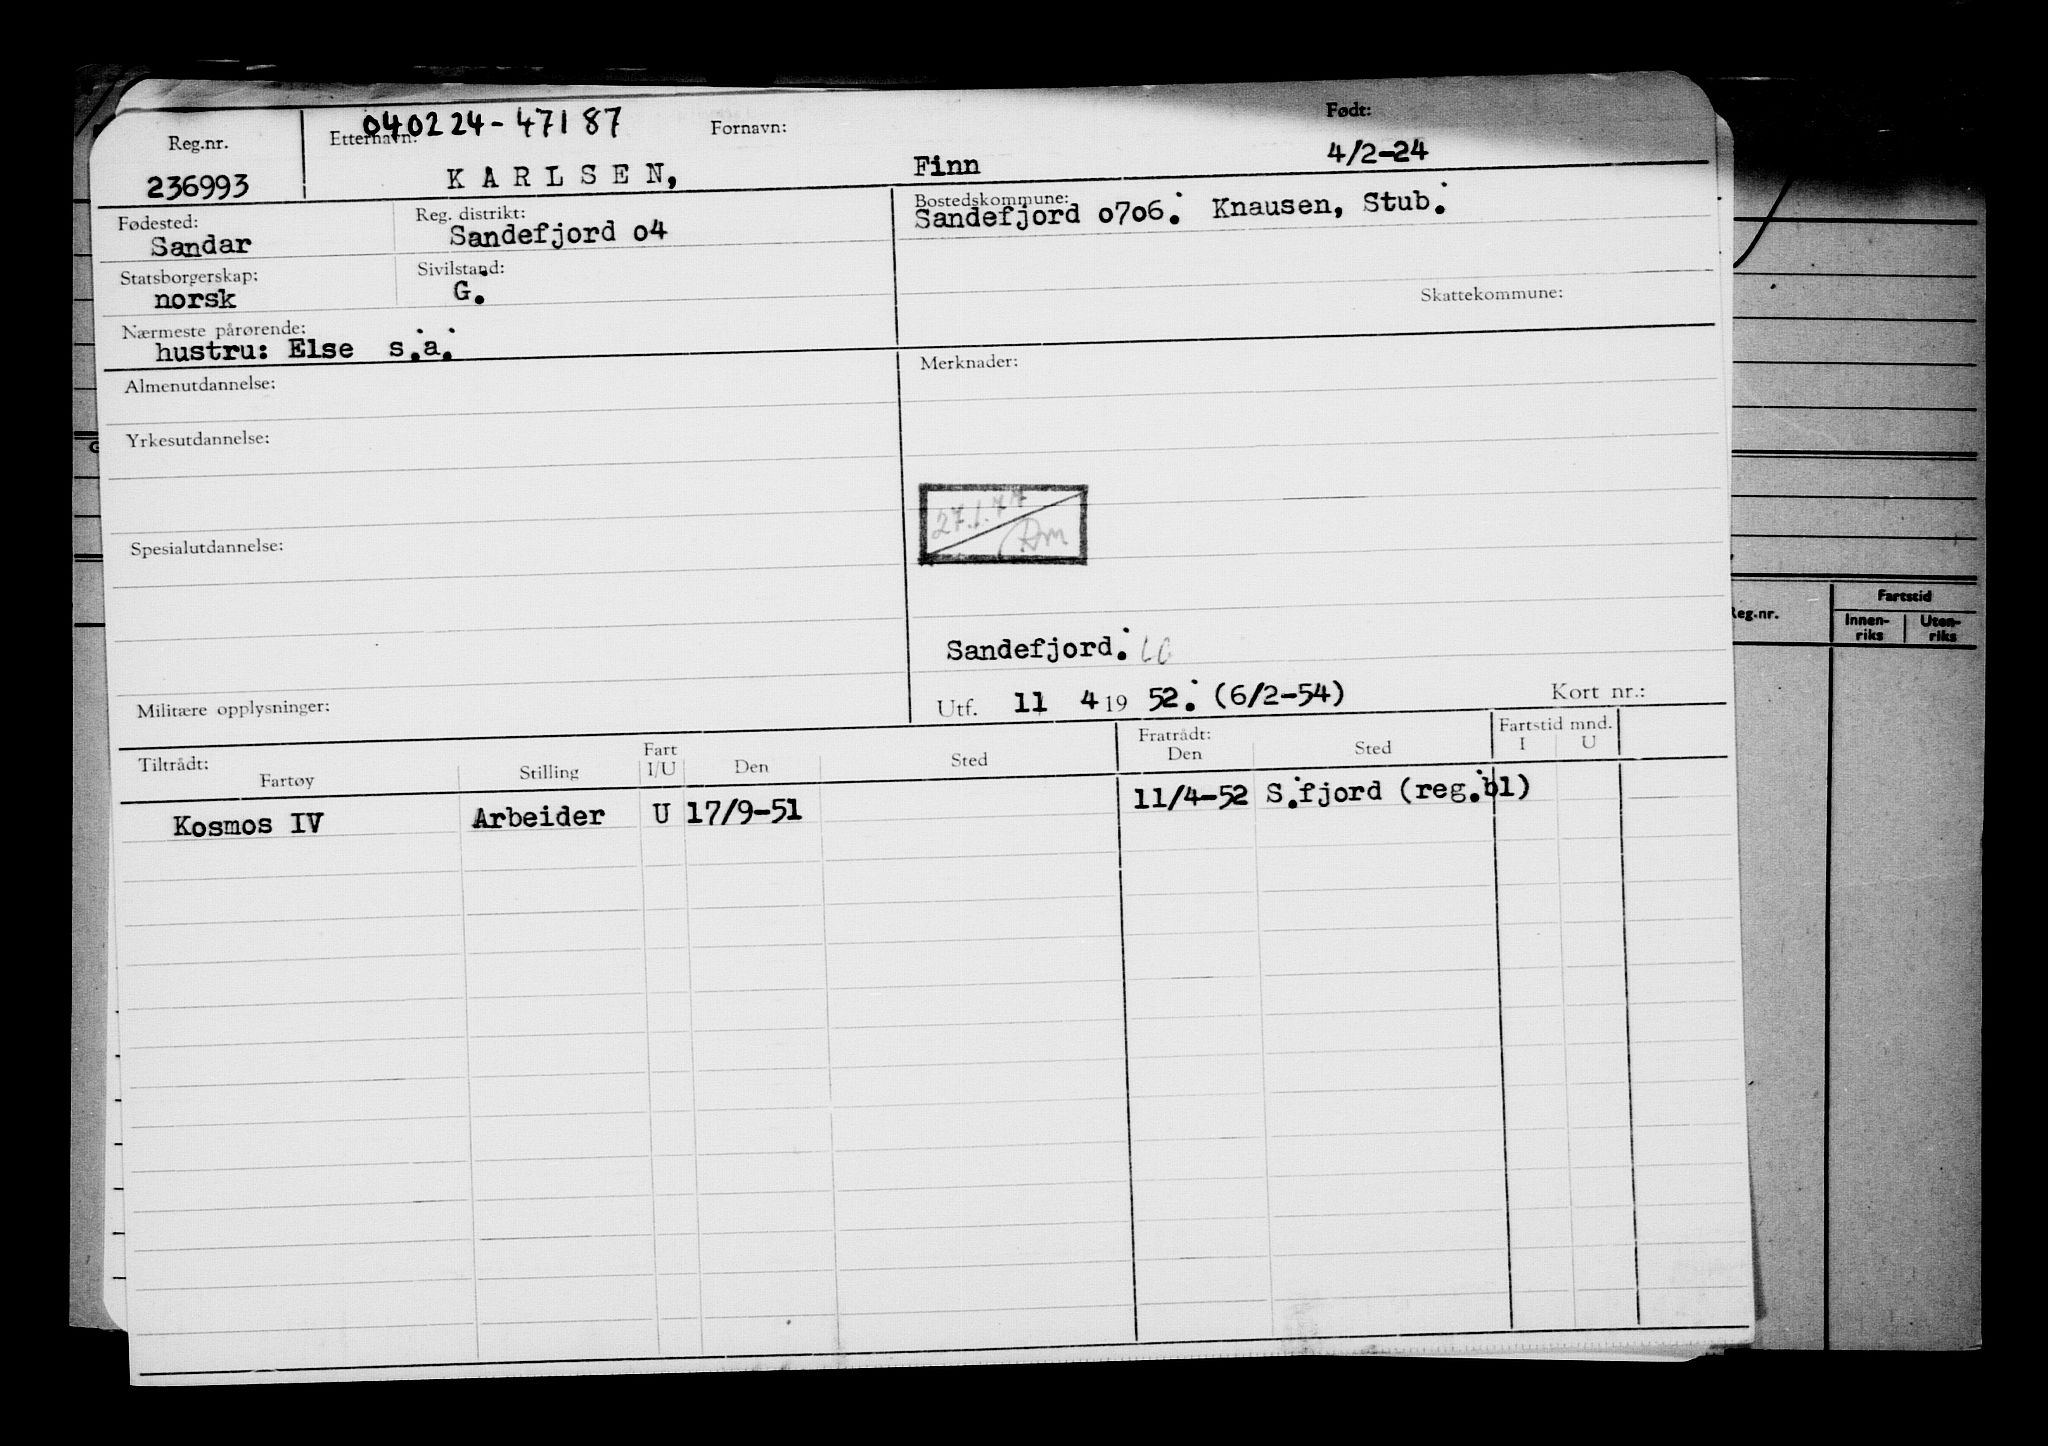 040224-47187
Reg.nr. Etternavn: Fornavn: Født:
236993 KARLSEN, Finn 4/2-24
Fødested: Reg. distrikt: Bostedskommune:
Sandar Sandefjord o4 Sandefjord o7o6. Knausen, Stub.
Statsborgerskap: Sivilstand:
norsk G.
Skattekommune:
Nærmeste pårørende:
hustru: Else s.a.
Almenutdannelse: Merknader:
Yrkesutdannelse:
27.1.77
Spesialutdannelse:
Sandefjord.
Militære opplysninger: Utf. 11 4 19 52. (6/2-54) Kort nr.:
Tiltrådt: Fratrådt: Fartstid mnd.
Fartøy Stilling Fart I/U Den Sted Den Sted I U
Kosmos IV Arbeider U 17/9-51 11/4-52 S.fjord (reg.bl)
Reg.nr. Fartstid
Innen-riks Uten-riks